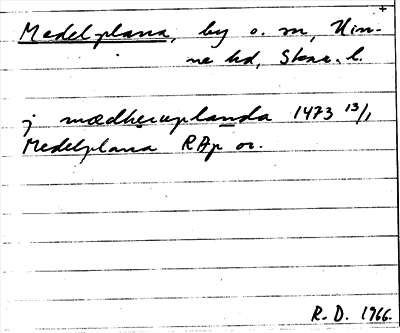 +
Medelplana, by o. sn, Kin-
ne hd, Skar. l.
j mædheruplanda 1473 13/1
Medelplana RAp or.
R. D. 1966.